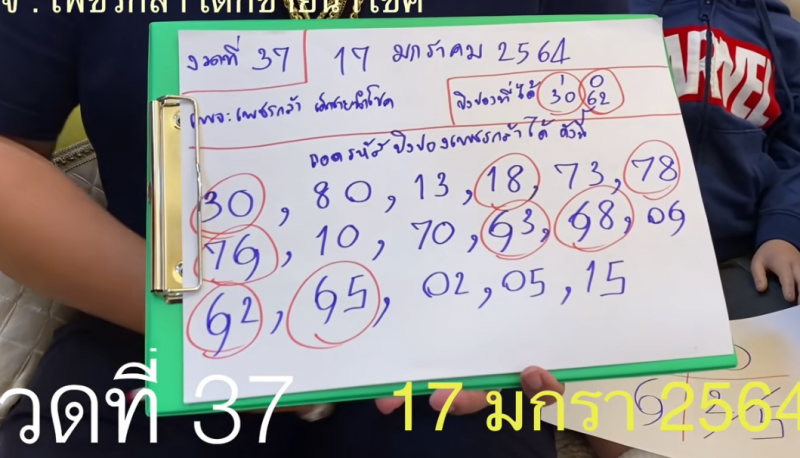 จ : เพชรกล้า เด็กชายนำโชค
งวดที่ 37
17 มกราคม 2564
เพจ : เพชรกล้า เด็กชายนำโชค
ปิงปองที่ได้ 30 62
1 0
ถอดรหัสปิงปองเพชรกล้าได้ ดังนี้
30, 80, 13, 18, 73, 78
76, 10, 70, 63, 68, 06
62, 65, 02, 05, 15
MARVEL
วดที่ 37
17 มกรา 2564